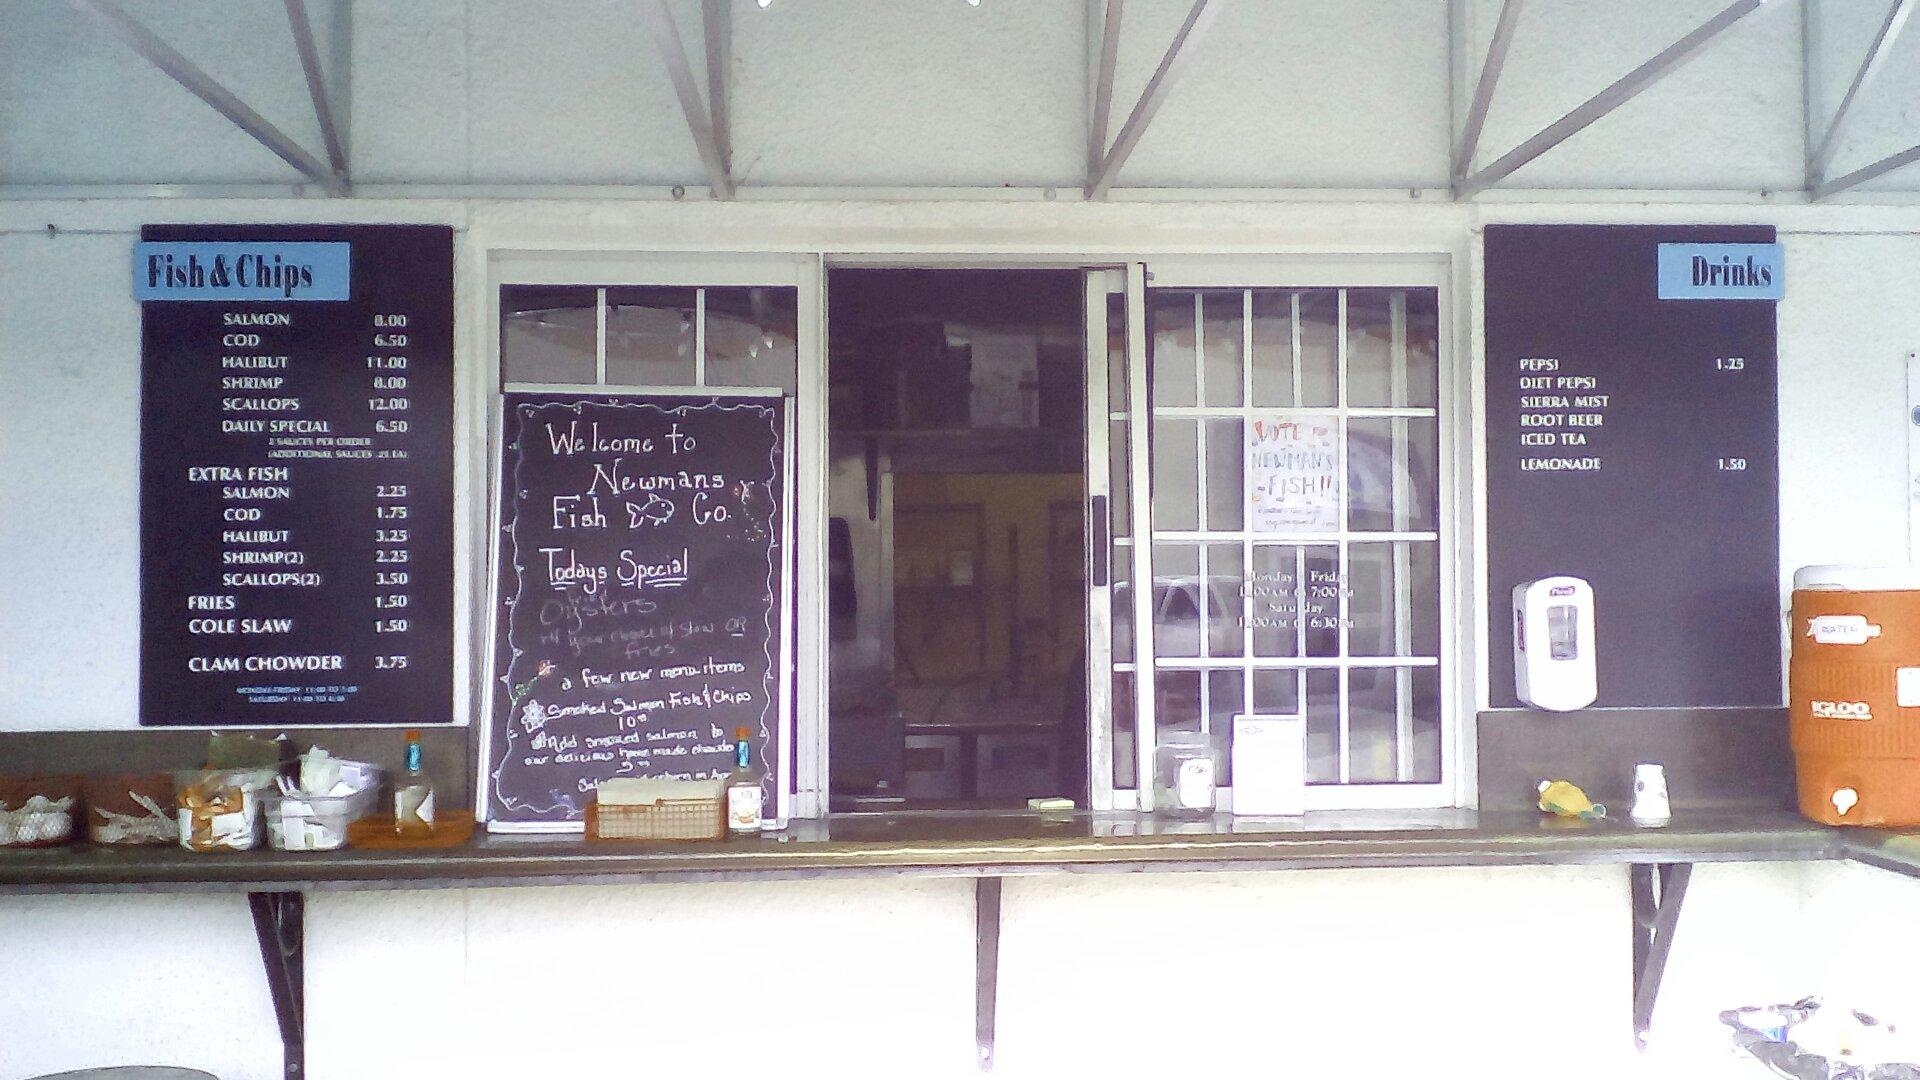 Fish & Chips
SALMON 8.00
COD 6.50
HALIBUT 11.00
SHRIMP 8.00
SCALLOPS 12.00
DAILY SPECIAL 6.50
2 SAUCES PER ORDER
(ADDITIONAL SAUCES .25 EA)
EXTRA FISH
SALMON 2.25
COD 1.75
HALIBUT 3.25
SHRIMP(2) 2.25
SCALLOPS(2) 3.50
FRIES 1.50
COLE SLAW 1.50
CLAM CHOWDER 3.75
MONDAY-FRIDAY 11:00 TO 7:00
Welcome to
Newmans
Fish Co.
Todays Special
Oysters
your choice of slaw OR
fries
a few new menu items
Smoked Salmon Fish & Chips
10
Add smoked salmon to
our delicious home made chowder
VOTE
NEWMAN'S
FISH!!
Monday Friday
7:00PM
Saturday
6:30PM
Drinks
PEPSI 1.25
DIET PEPSI
SIERRA MIST
ROOT BEER
ICED TEA
LEMONADE 1.50
WATER
IGLOO